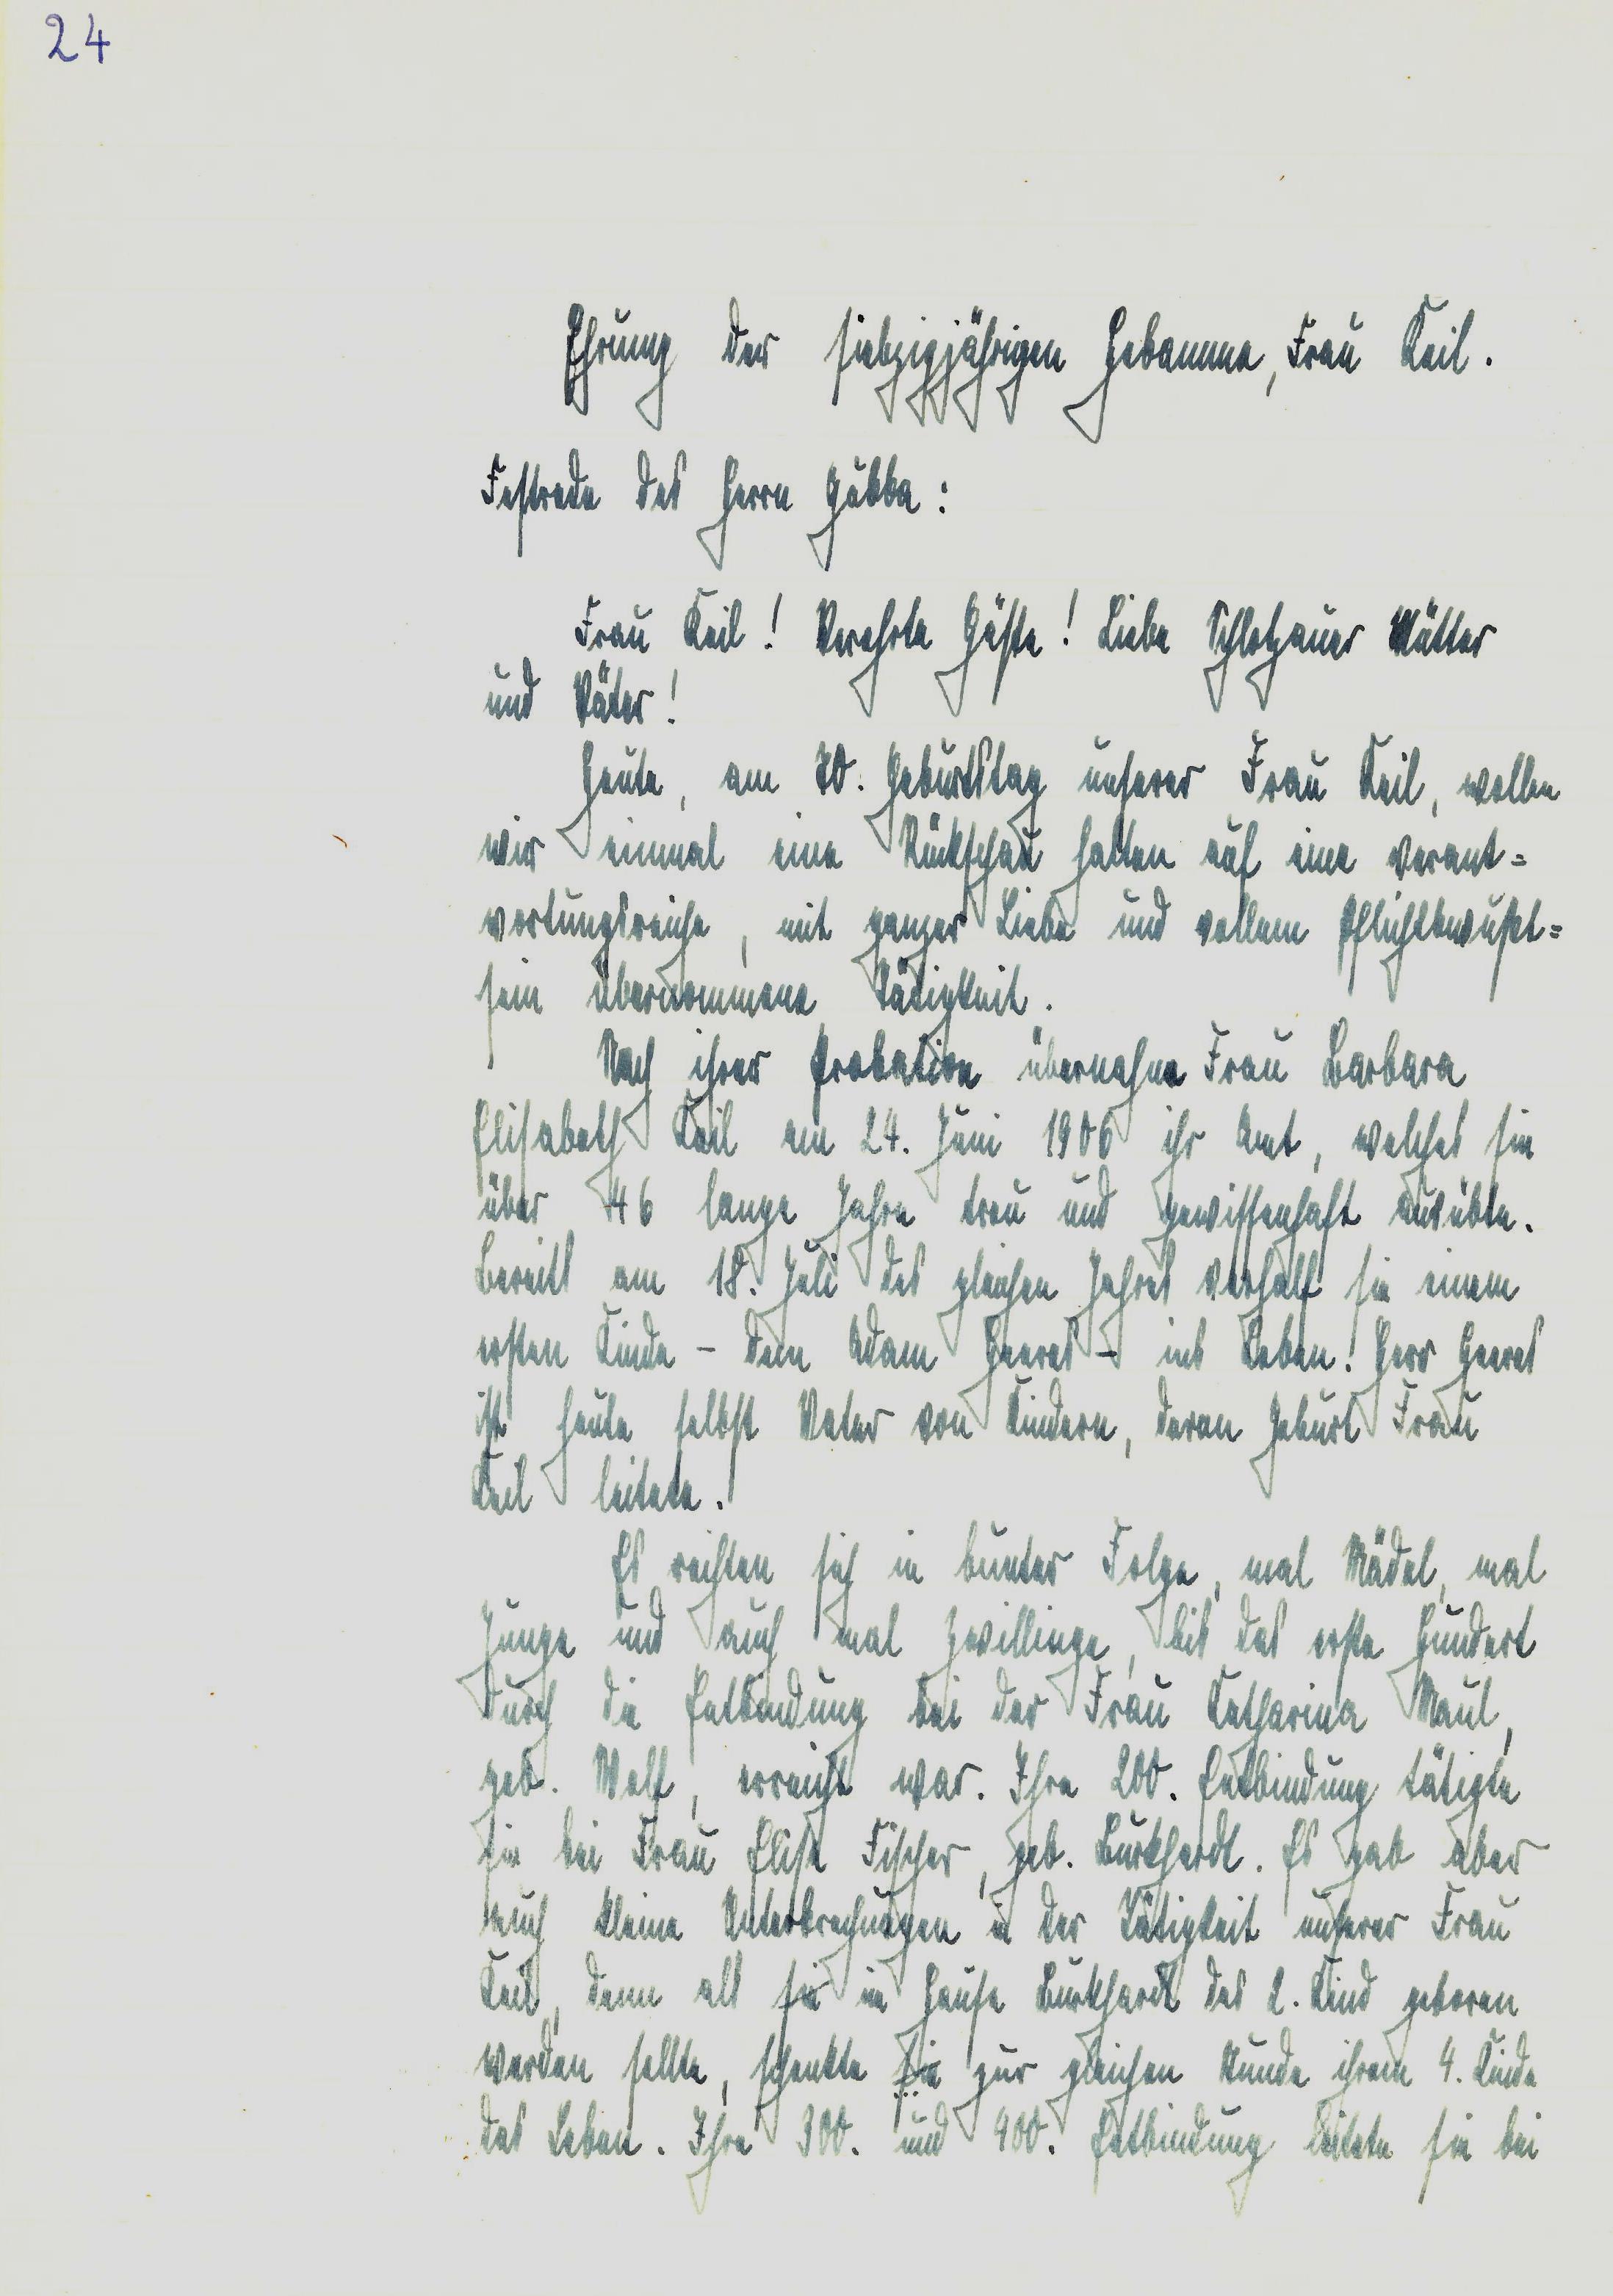 24
Ehrung der siebzigjährigen Hebamme, Frau Keil.
Festrede des Herrn Gübba:
Frau Keil! Verehrte Gäste! Liebe Schlotzauer Mütter
und Väter!
Heute, am 70. Geburtstag unserer Frau Keil, wollen
wir einmal eine Rückschau halten auf eine verant=
wortungsreiche, mit ganzer Liebe und vollem Pflichtbewußt=
sein übernommene Tätigkeit.
Nach ihrer Probation übernahm Frau Barbara
Elisabeth Keil am 24. Juni 1906 ihr Amt, welches sie
über 46 lange Jahre treu und gewissenhaft ausübte.
Bereits am 18. Juli des gleichen Jahres verhalf sie einem
ersten Kinde - dem Adam Heeres - ins Leben! Herr Heeres
ist heute selbst Vater von Kindern, deren Geburt Frau
Keil leitete.
Es reihten sich in bunter Folge, mal Mädel, mal
Junge und auch mal Zwillinge, bis das erste Hundert
durch die Entbindung bei der Frau Katharina Maul,
geb. Wolf, erreicht war. Ihre 200. Entbindung tätigte
sie bei Frau Elise Fischer, geb. Burkhardt. Es gab aber
auch kleine Unterbrechungen in der Tätigkeit unserer Frau
Keil, denn als sie im Hause Burkhardt das 2. Kind geboren
werden sollte, schenkte sie zur gleichen Stunde ihrem 4. Kinde
das Leben. Ihre 300. und 400. Entbindung leitete sie bei